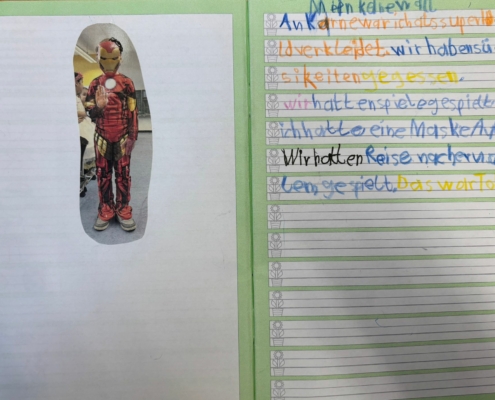 Mein kanewall
An Karnewar ich als superh
ld verkleidet wir haben sü
sikeiten gegessen.
wir hatten spiele gespielt
ich hatte eine Maske Auf
Wir hatten Reise nach
lem gespielt. Das war To